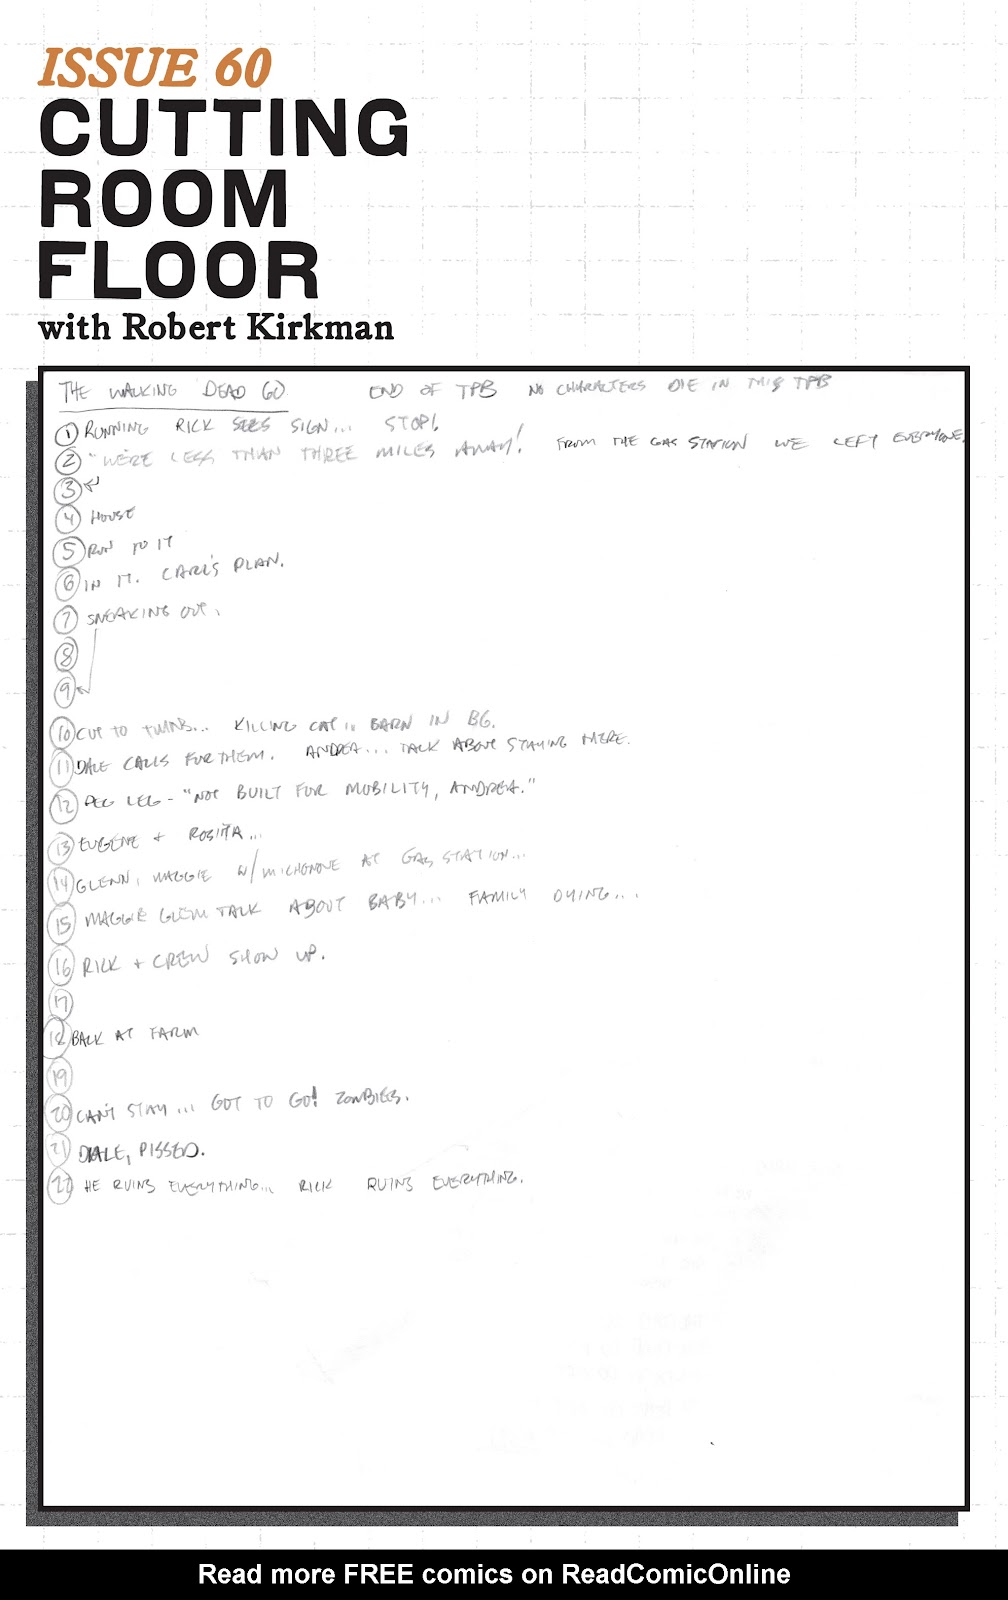 ISSUE 60
CUTTING
ROOM
FLOOR
with Robert Kirkman
THE WALKING DEAD 60 END OF TPB NO CHARACTERS DIE IN THIS TPB
1 RUNNING RICK SEES SIGN... STOP!
2 "WE'RE LESS THAN THREE MILES AWAY! FROM THE GAS STATION WE LEFT EVERYONE.
3
4 HOUSE
5 RUN TO IT
6 IN IT. CARL'S PLAN.
7 SNEAKING OUT.
8
9
10 CUT TO TWINS... KILLING CAT.. BARN IN BG.
11 DALE CALLS FOR THEM. ANDREA... TALK ABOUT STAYING HERE.
12 PEG LEG - "NOT BUILT FOR MOBILITY, ANDREA."
13 EUGENE + ROSITA...
14 GLENN, MAGGIE W/MICHONNE AT GAS STATION...
15 MAGGIE GLENN TALK ABOUT BABY... FAMILY DYING...
16 RICK + CREW SHOW UP.
17
18 BACK AT FARM
19
20 CAN'T STAY... GOT TO GO! ZOMBIES.
21 DALE, PISSED.
22 HE RUINS EVERYTHING... RICK RUINS EVERYTHING.
Read more FREE comics on ReadComicOnline